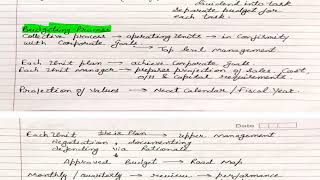 Dividend into task
separate budget for
each task.
Budgeting Process
Collective process → operating Units → in Confirmity
with Corporate goals → Top level management
Each Unit plan → achieve Corporate Goals
Each Unit manager → prepares projection of sales, Cost,
O/H & Capital requirements
Projection of Values → Next Calendar / Fiscal Year.
Each Unit their Plan → Upper Management
Negotiation, documenting
Defending via Rationale
→ Approved Budget → Road Map
Monthly / Quarterly → review → performance